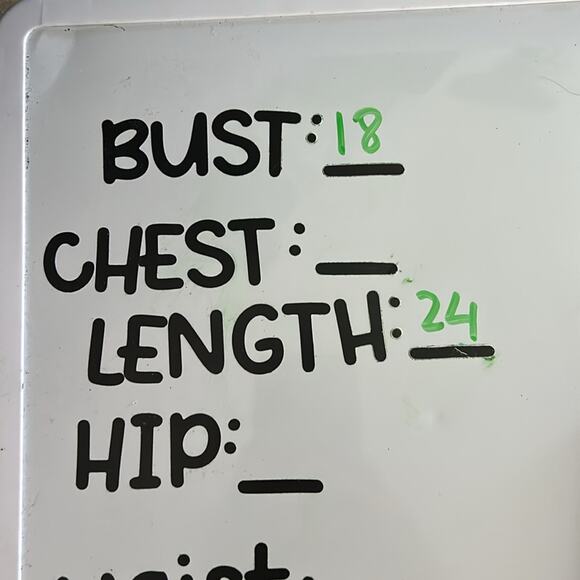 BUST: 18
CHEST:
LENGTH: 24
HIP:
waist: